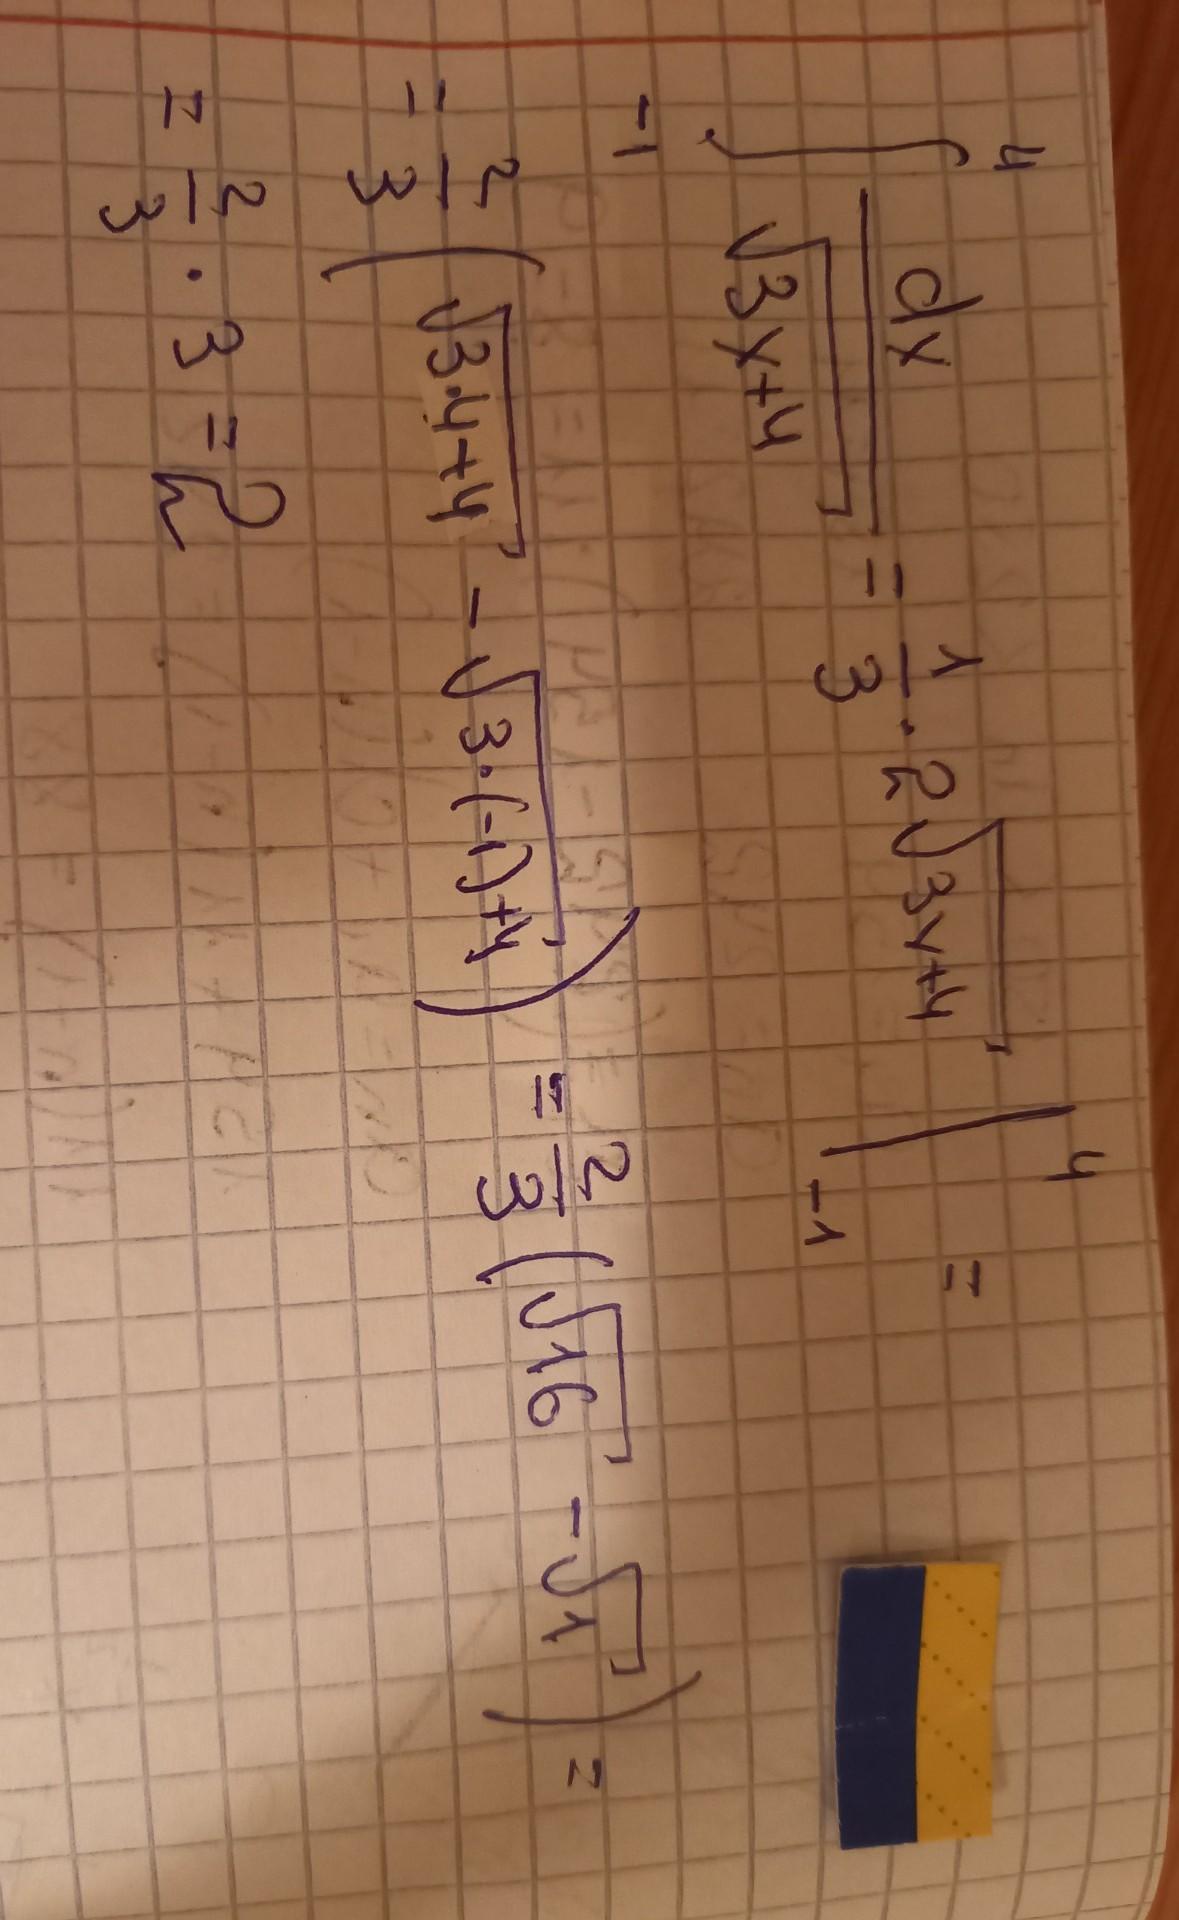 ∫₋₁⁴ dx/√(3x+4) = 1/3 · 2√(3x+4) |₋₁⁴ =
= 2/3 (√(3·4+4) - √(3·(-1)+4)) = 2/3 (√16 - √1) =
= 2/3 · 3 = 2